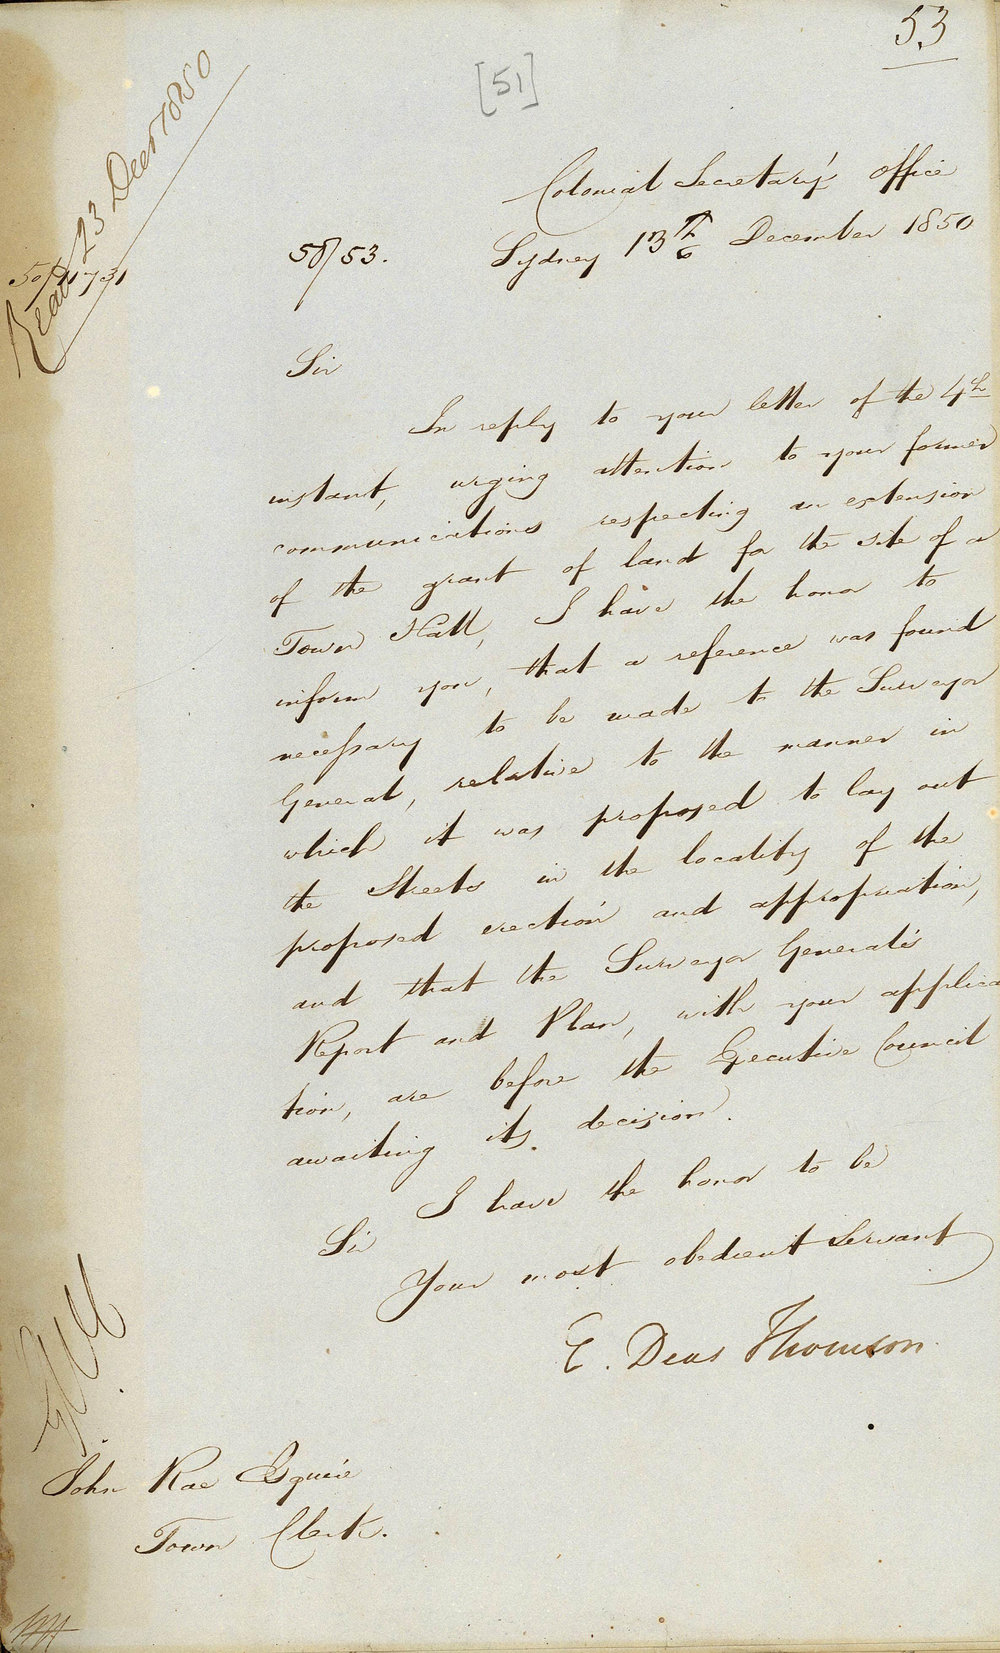 53
[51]
Read 23 Decr 1850
50/11731
Colonial Secretary's Office
50/53.
Sydney 13th December 1850
Sir
In reply to your letter of the 4th
instant, urging attention to your former
communications respecting an extension
of the grant of land for the site of a
Town Hall, I have the honor to
inform you, that a reference was found
necessary to be made to the Surveyor
General, relative to the manner in
which it was proposed to lay out
the Streets in the locality of the
proposed erection and appropriation,
and that the Surveyor General's
Report and Plan, with your applica
tion, are before the Executive Council
awaiting its decision.
I have the honor to be
Sir
Your most obedient Servant
E. Deas Thomson
John Rae Esquire
Town Clerk.